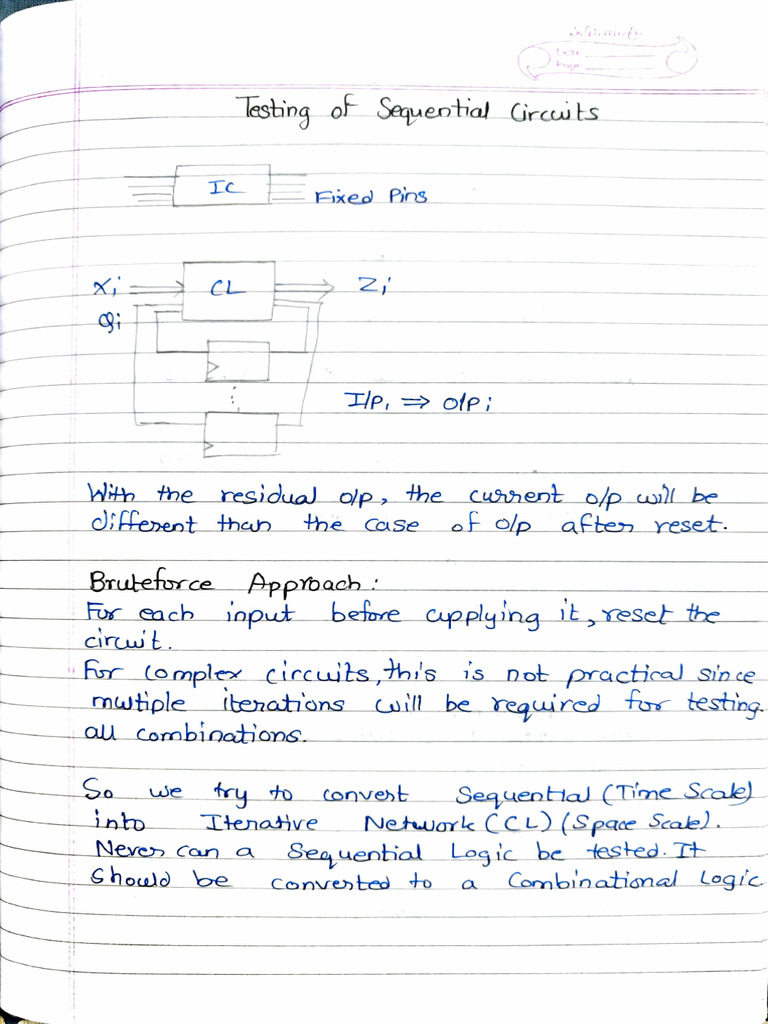 Date
Page
Testing of Sequential Circuits
IC
Fixed Pins
Xi
CL
Zi
Qi
I/Pi ⇒ O/Pi
With the residual o/p, the current o/p will be
different than the case of o/p after reset.
Bruteforce Approach:
For each input before applying it, reset the
circuit.
For complex circuits, this is not practical since
multiple iterations will be required for testing
all combinations.
So we try to convert Sequential (Time Scale)
into Iterative Network (CL) (Space Scale).
Never can a Sequential Logic be tested. It
should be converted to a Combinational Logic